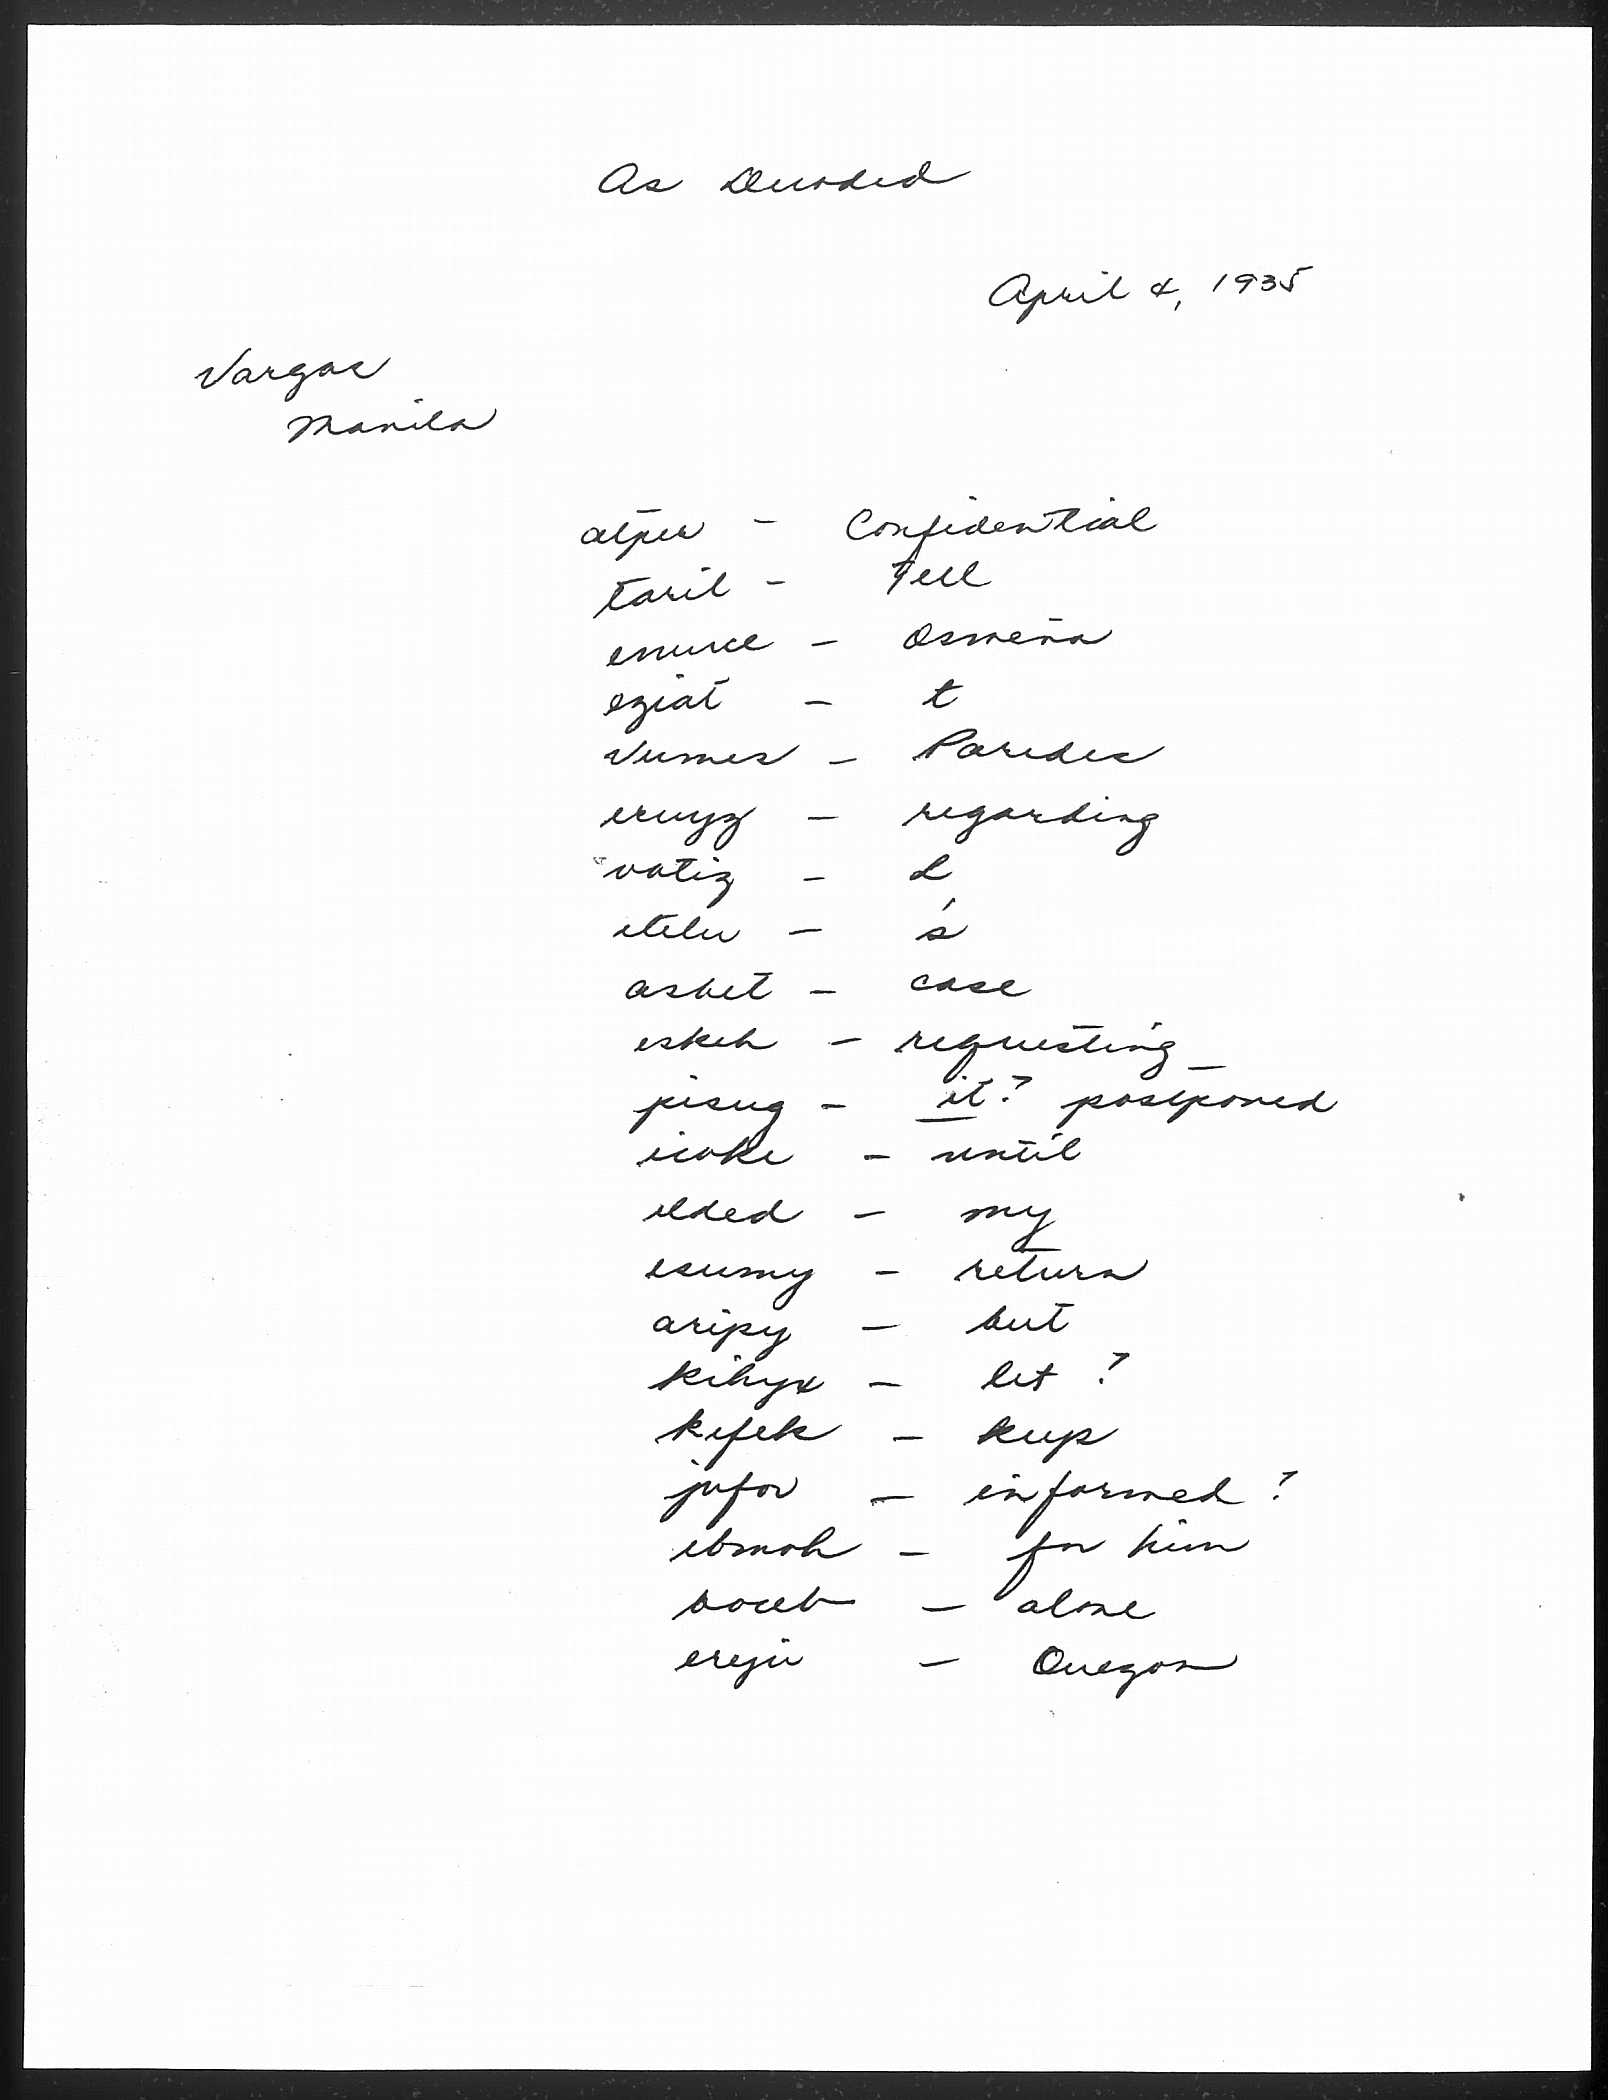 As Decoded
April 4, 1935
Vargas
Manila
atpew - Confidential
taril - Tell
enuce - Osmeña
eziat - t
vumes - Paredes
eruyz - regarding
vatiz - d
etelu - 's
asbet - case
eskeh - requesting
pisug - it? postponed
icoke - until
elded - my
esumy - return
aripy - but
kihyx - let ?
kefek - keep
jufov - informed ?
ebmoh - for him
boceb - alone
ereju - Quezon